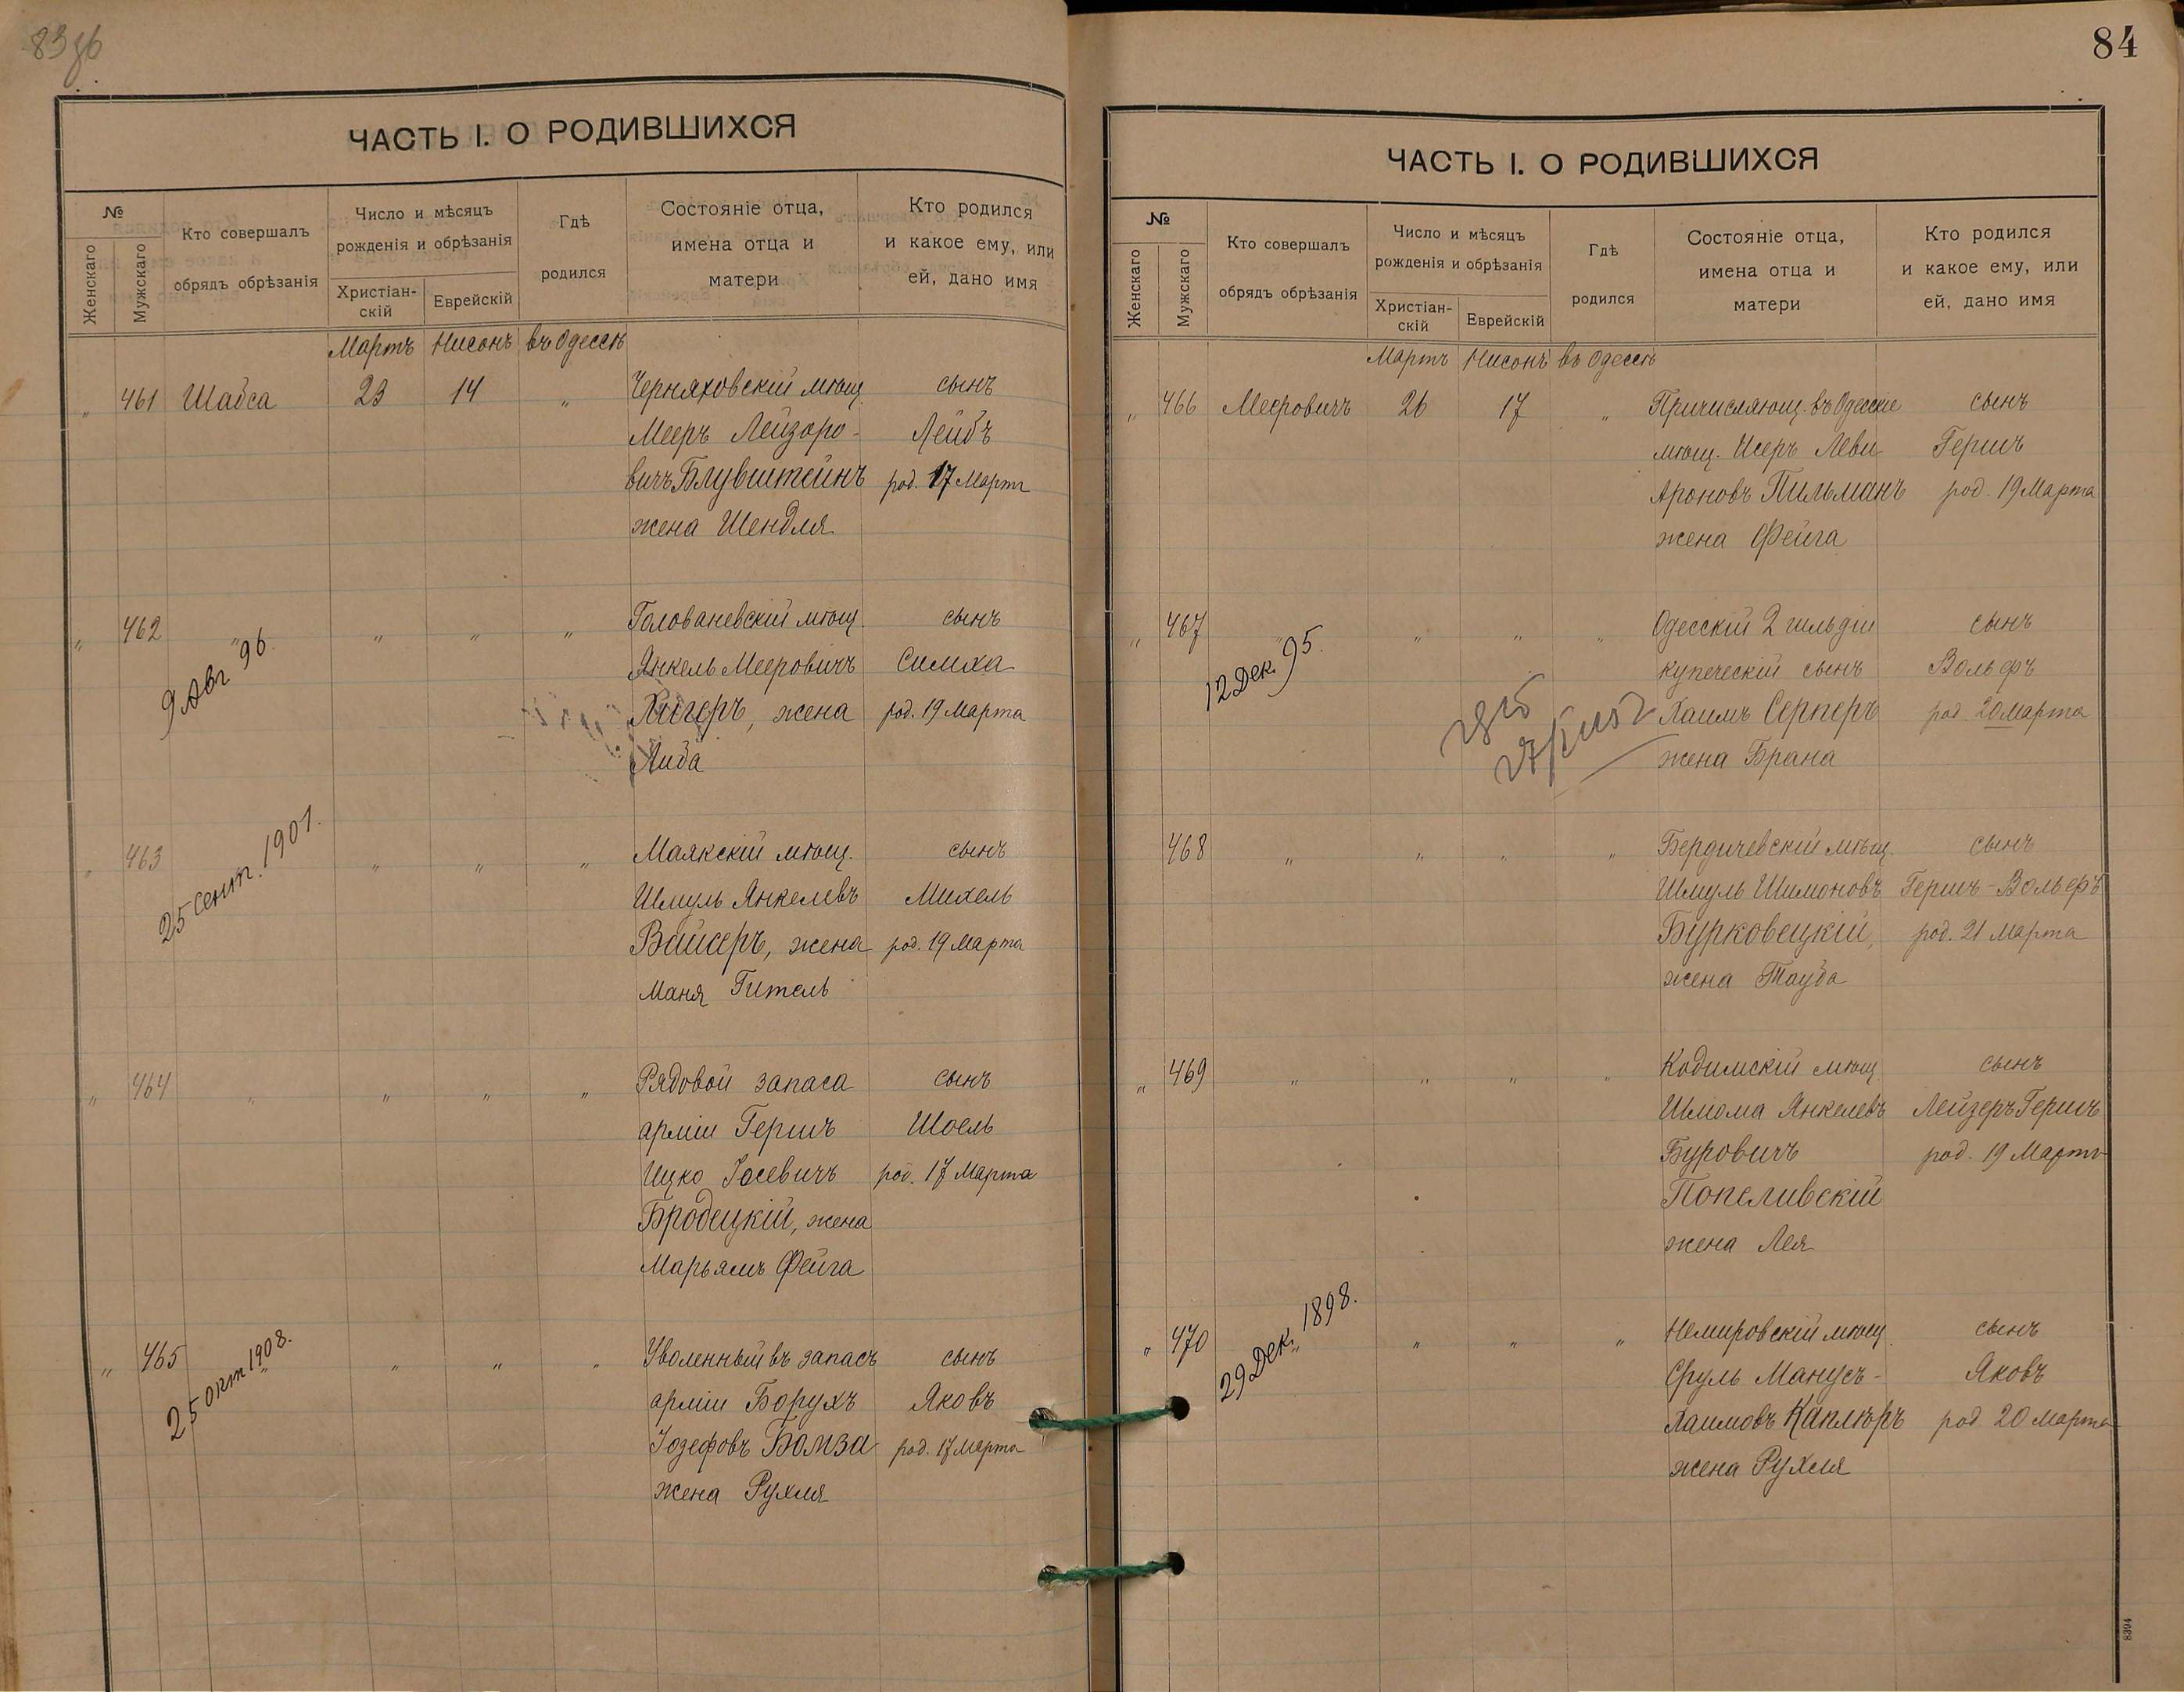 ЧАСТЬ I. О РОДИВШИХСЯ
№
Женскаго
Мужскаго
Кто совершалъ
обрядъ обрѣзанія
Число и мѣсяцъ
рожденія и обрѣзанія
Христіан-
скій
Еврейскій
Гдѣ
родился
Состояніе отца,
имена отца и
матери
Кто родился
и какое ему, или
ей, дано имя
Мартъ Нисонъ въ Одессѣ
„ 461 Шабса 23 14 „ Черняховскій мѣщ. сынъ
Мееръ Лейзоро- Лейбъ
вичъ Блувштейнъ род. 17 Марта
жена Шендля
„ 462 „ „ „ „ Голованевскій мѣщ. сынъ
9 Авг 96.
Янкель Мееровичъ Симха
Хигеръ, жена род. 19 Марта
Либа
„ 463 „ „ „ Маякскій мѣщ. сынъ
25 Сент. 1901.
Шмуль Янкелевъ Михель
Вайсеръ, жена род. 19 Марта
Маня Гитель
„ 464 „ „ „ „ Рядовой запаса сынъ
арміи Гершъ Шоель
Ицко Іосевичъ род. 17 Марта
Бродецкій, жена
Марьямъ Фейга
„ 465 „ „ „ „ Уволенный въ запасъ сынъ
25 окт 1908.
арміи Борухъ Яковъ
Іозефовъ Бомза род. 17 Марта
жена Рухля
84
ЧАСТЬ I. О РОДИВШИХСЯ
№
Женскаго
Мужскаго
Кто совершалъ
обрядъ обрѣзанія
Число и мѣсяцъ
рожденія и обрѣзанія
Христіан-
скій
Еврейскій
Гдѣ
родился
Состояніе отца,
имена отца и
матери
Кто родился
и какое ему, или
ей, дано имя
Мартъ Нисонъ въ Одессѣ
„ 466 Мееровичъ 26 17 „ Причисляющ. въ Одесскіе сынъ
мѣщ. Исеръ Леви Гершъ
Ароновъ Тильманъ род. 19 Марта
жена Фейга
„ 467 „ „ „ „ Одесскій 2 гильдіи сынъ
12 Дек. 95.
купеческій сынъ Вольфъ
Хаимъ Серперъ род. 20 марта
жена Брана
468 „ „ „ „ Бердичевскій мѣщ. сынъ
Шмуль Шимоновъ Гершъ-Вольфъ
Бурковецкій, род. 21 Марта
жена Тауба
„ 469 „ „ „ „ Кодимскій мѣщ. сынъ
Шлома Янкелевъ Лейзеръ Гершъ
Буровичъ род. 19 Марта
Попеливскій
жена Лея
„ 470 „ „ „ „ Немировскій мѣщ. сынъ
29 Дек. 1898.
Сруль Манусъ- Яковъ
Хаимовъ Каплюръ род 20 Марта
жена Рухля
8394